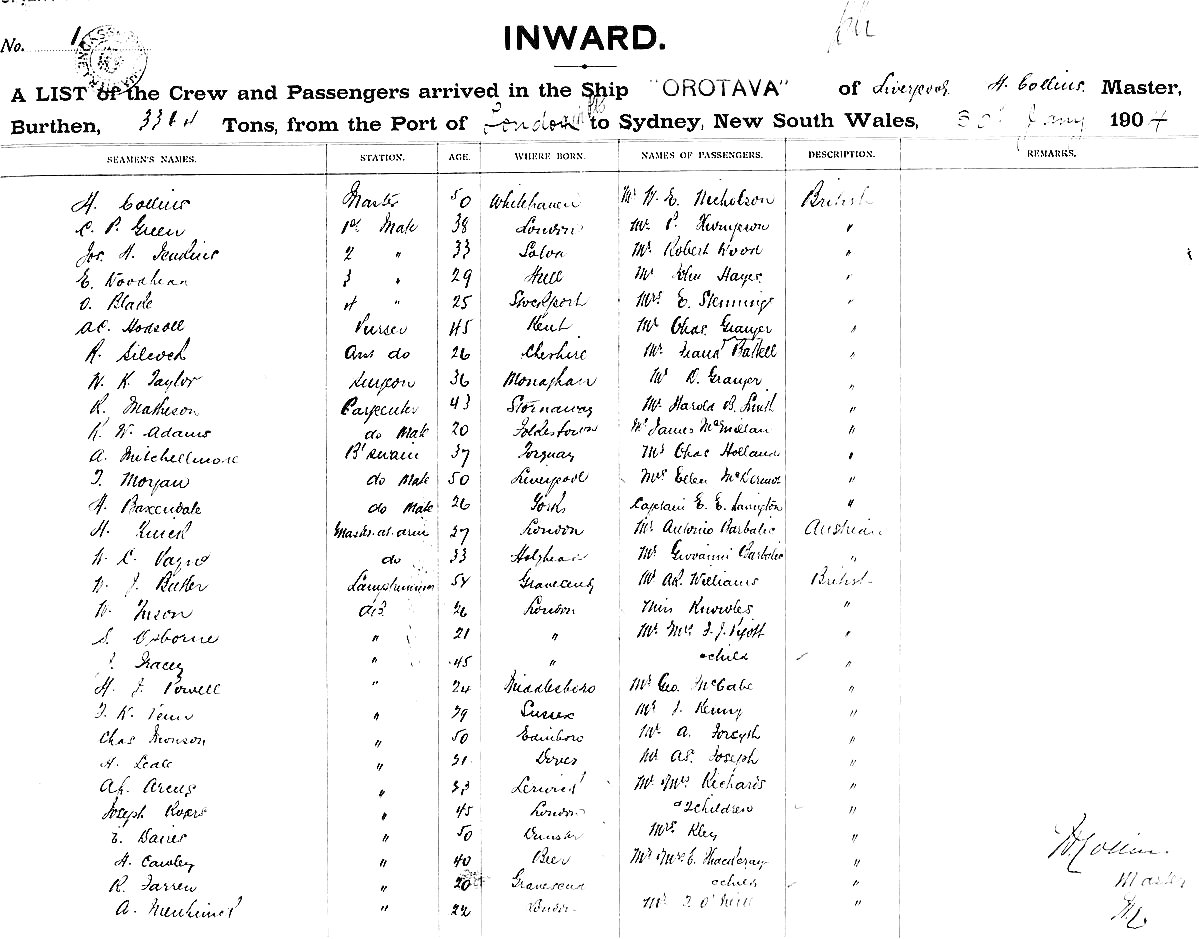 No. 1
INWARD.
A LIST of the Crew and Passengers arrived in the Ship "OROTAVA" of Liverpool H. Collins Master,
Burthen, Tons, from the Port of London to Sydney, New South Wales, 30 Jany 1904
SEAMEN'S NAMES. STATION. AGE. WHERE BORN. NAMES OF PASSENGERS. DESCRIPTION. REMARKS.
H. Collins Master 50 Whitehaven Mr W. E. Nicholson British
C. P. Green 1st Mate 38 London Mr P. Thompson "
Jos. H. Jenkins 2 " 33 Mr Robert Wood "
E. Woodhean 3 " 29 Hull Mr John Hayes "
O. Blake 4 " 25 Stockport Mrs E. Stennings "
A.C. Hodsoll Purser 45 Kent Mr Chas. Granger "
R. Silcock Asst do 26 Cheshire Mr "
W. K. Taylor Surgeon 36 Monaghan Mr Granger "
K. Matheson Carpenter 43 Stornaway Mr Harold B. Smith "
K. W. Adams do Mate 20 Mr James McMillan "
A. Mitchellmore B'swain 37 Torquay Mr Chas Holland "
T. Morgan do Mate 50 Liverpool Mrs Ellen "
H. Baxendale do Mate 26 York Captain E. E. Langton "
H. Master-at-arms 37 London Mr Antonio Barbalic Austrian
W. C. do 33 Holyhead Mr Giovanni Barbalic "
W. J. Butler Lamptrimmer 54 Gravesend Mr Williams British
W. A.B. 26 London Miss Knowles "
S. Osborne " 21 " Mr Mrs "
Tracey " 45 " child "
H. J. Powell " 24 Middlesboro Mr Geo. McCabe "
T. K. Venn " 39 Sussex Mr J. Kenny "
Chas Monson " 50 Edinboro Mr A. Forsyth "
H. Leale " 31 Dover Mr Joseph "
Arcus " 33 Lerwick Mr & Mrs Richards "
Joseph " 45 London & 2 children "
E. Davies " 50 Mrs Kley "
H. Cawley " 40 Beer Mr & Mrs Thackeray "
R. Farren " 20 Gravesend child "
A. " 22 Mr O'Neill "
H Collins.
Master